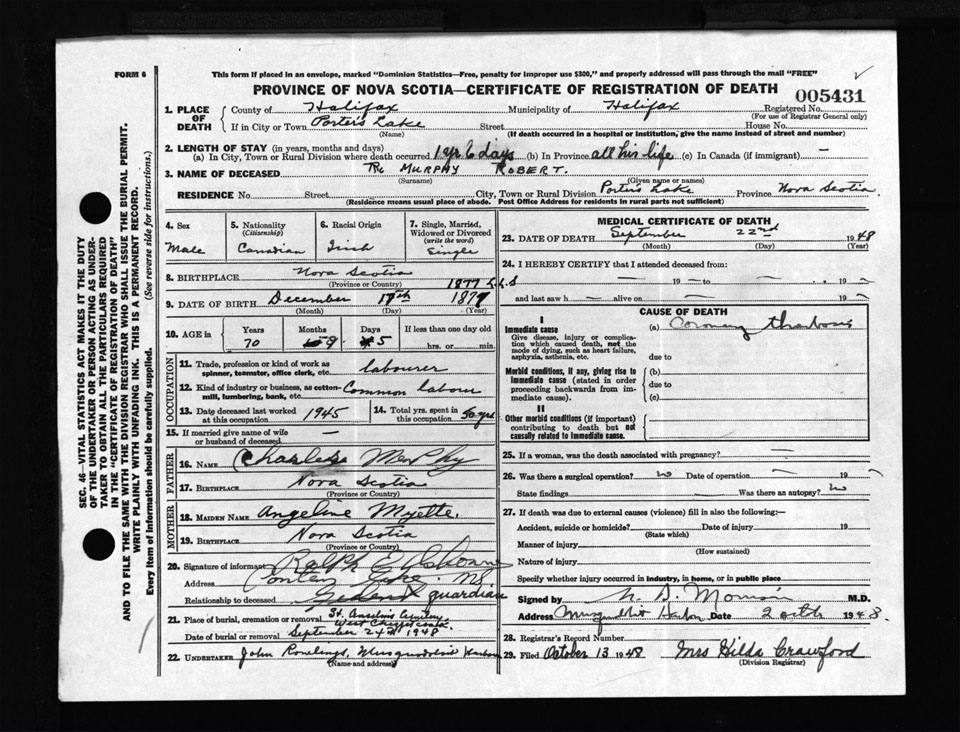 FORM 6
This form if placed in an envelope, marked "Dominion Statistics—Free, penalty for improper use $300," and properly addressed will pass through the mail "FREE"
PROVINCE OF NOVA SCOTIA—CERTIFICATE OF REGISTRATION OF DEATH
005431
1. PLACE OF DEATH County of Halifax Municipality of Halifax Registered No.
(For use of Registrar General only)
If in City or Town Porter's Lake Street House No.
(Name) (If death occurred in a hospital or institution, give the name instead of street and number)
2. LENGTH OF STAY (in years, months and days)
(a) In City, Town or Rural Division where death occurred 1 yr 6 days (b) In Province all his life (c) In Canada (if immigrant) —
3. NAME OF DECEASED MURPHY ROBERT.
(Surname) (Given name or names)
RESIDENCE No. Street City, Town or Rural Division Porter's Lake Province Nova Scotia
(Residence means usual place of abode. Post Office Address for residents in rural parts not sufficient)
4. Sex Male
5. Nationality (Citizenship) Canadian
6. Racial Origin Irish
7. Single, Married, Widowed or Divorced (write the word) Single
8. BIRTHPLACE Nova Scotia
(Province or Country)
1877
9. DATE OF BIRTH December 17th 1877
(Month) (Day) (Year)
10. AGE in Years 70 Months 9 Days 5 If less than one day old hrs. or min.
OCCUPATION
11. Trade, profession or kind of work as spinner, teamster, office clerk, etc. labourer
12. Kind of industry or business, as cotton-mill, lumbering, bank, etc. Common labour
13. Date deceased last worked at this occupation 1945
14. Total yrs. spent in this occupation 50 yrs
15. If married give name of wife or husband of deceased —
FATHER
16. NAME Charles Murphy
17. BIRTHPLACE Nova Scotia
(Province or Country)
MOTHER
18. MAIDEN NAME Angeline Myette.
19. BIRTHPLACE Nova Scotia
(Province or Country)
20. Signature of informant Ralph E
Address
Relationship to deceased guardian
21. Place of burial, cremation or removal St. Anselm's Cemetery West Chezzetcook
Date of burial or removal September 24th 1948
22. UNDERTAKER John Rowlings, Musquodoboit Harbour
(Name and address)
MEDICAL CERTIFICATE OF DEATH
23. DATE OF DEATH September 22nd 1948
(Month) (Day) (Year)
24. I HEREBY CERTIFY that I attended deceased from:
— 19 — to — 19 —
and last saw h — alive on — 19 —
CAUSE OF DEATH
I
Immediate cause (a) Coronary thrombosis
Give disease, injury or complication which caused death, not the mode of dying, such as heart failure, asphyxia, asthenia, etc.
due to
Morbid conditions, if any, giving rise to immediate cause (stated in order proceeding backwards from immediate cause).
(b)
due to
(c)
II
Other morbid conditions (if important) contributing to death but not causally related to immediate cause.
25. If a woman, was the death associated with pregnancy? —
26. Was there a surgical operation? no Date of operation — 19 —
State findings Was there an autopsy? no
27. If death was due to external causes (violence) fill in also the following:—
Accident, suicide or homicide? Date of injury 19
(State which)
Manner of injury
(How sustained)
Nature of injury
Specify whether injury occurred in industry, in home, or in public place
Signed by M.D.
Address Musquodoboit Harbour Date 2 Octth 1948
28. Registrar's Record Number
29. Filed October 13 1948 Mrs Hilda Crawford
(Division Registrar)
SEC. 46—VITAL STATISTICS ACT MAKES IT THE DUTY
OF THE UNDERTAKER OR PERSON ACTING AS UNDER-
TAKER TO OBTAIN ALL THE PARTICULARS REQUIRED
IN THE "CERTIFICATE OF REGISTRATION OF DEATH"
AND TO FILE THE SAME WITH THE DIVISION REGISTRAR WHO SHALL ISSUE THE BURIAL PERMIT.
WRITE PLAINLY WITH UNFADING INK. THIS IS A PERMANENT RECORD.
Every item of information should be carefully supplied. (See reverse side for instructions.)